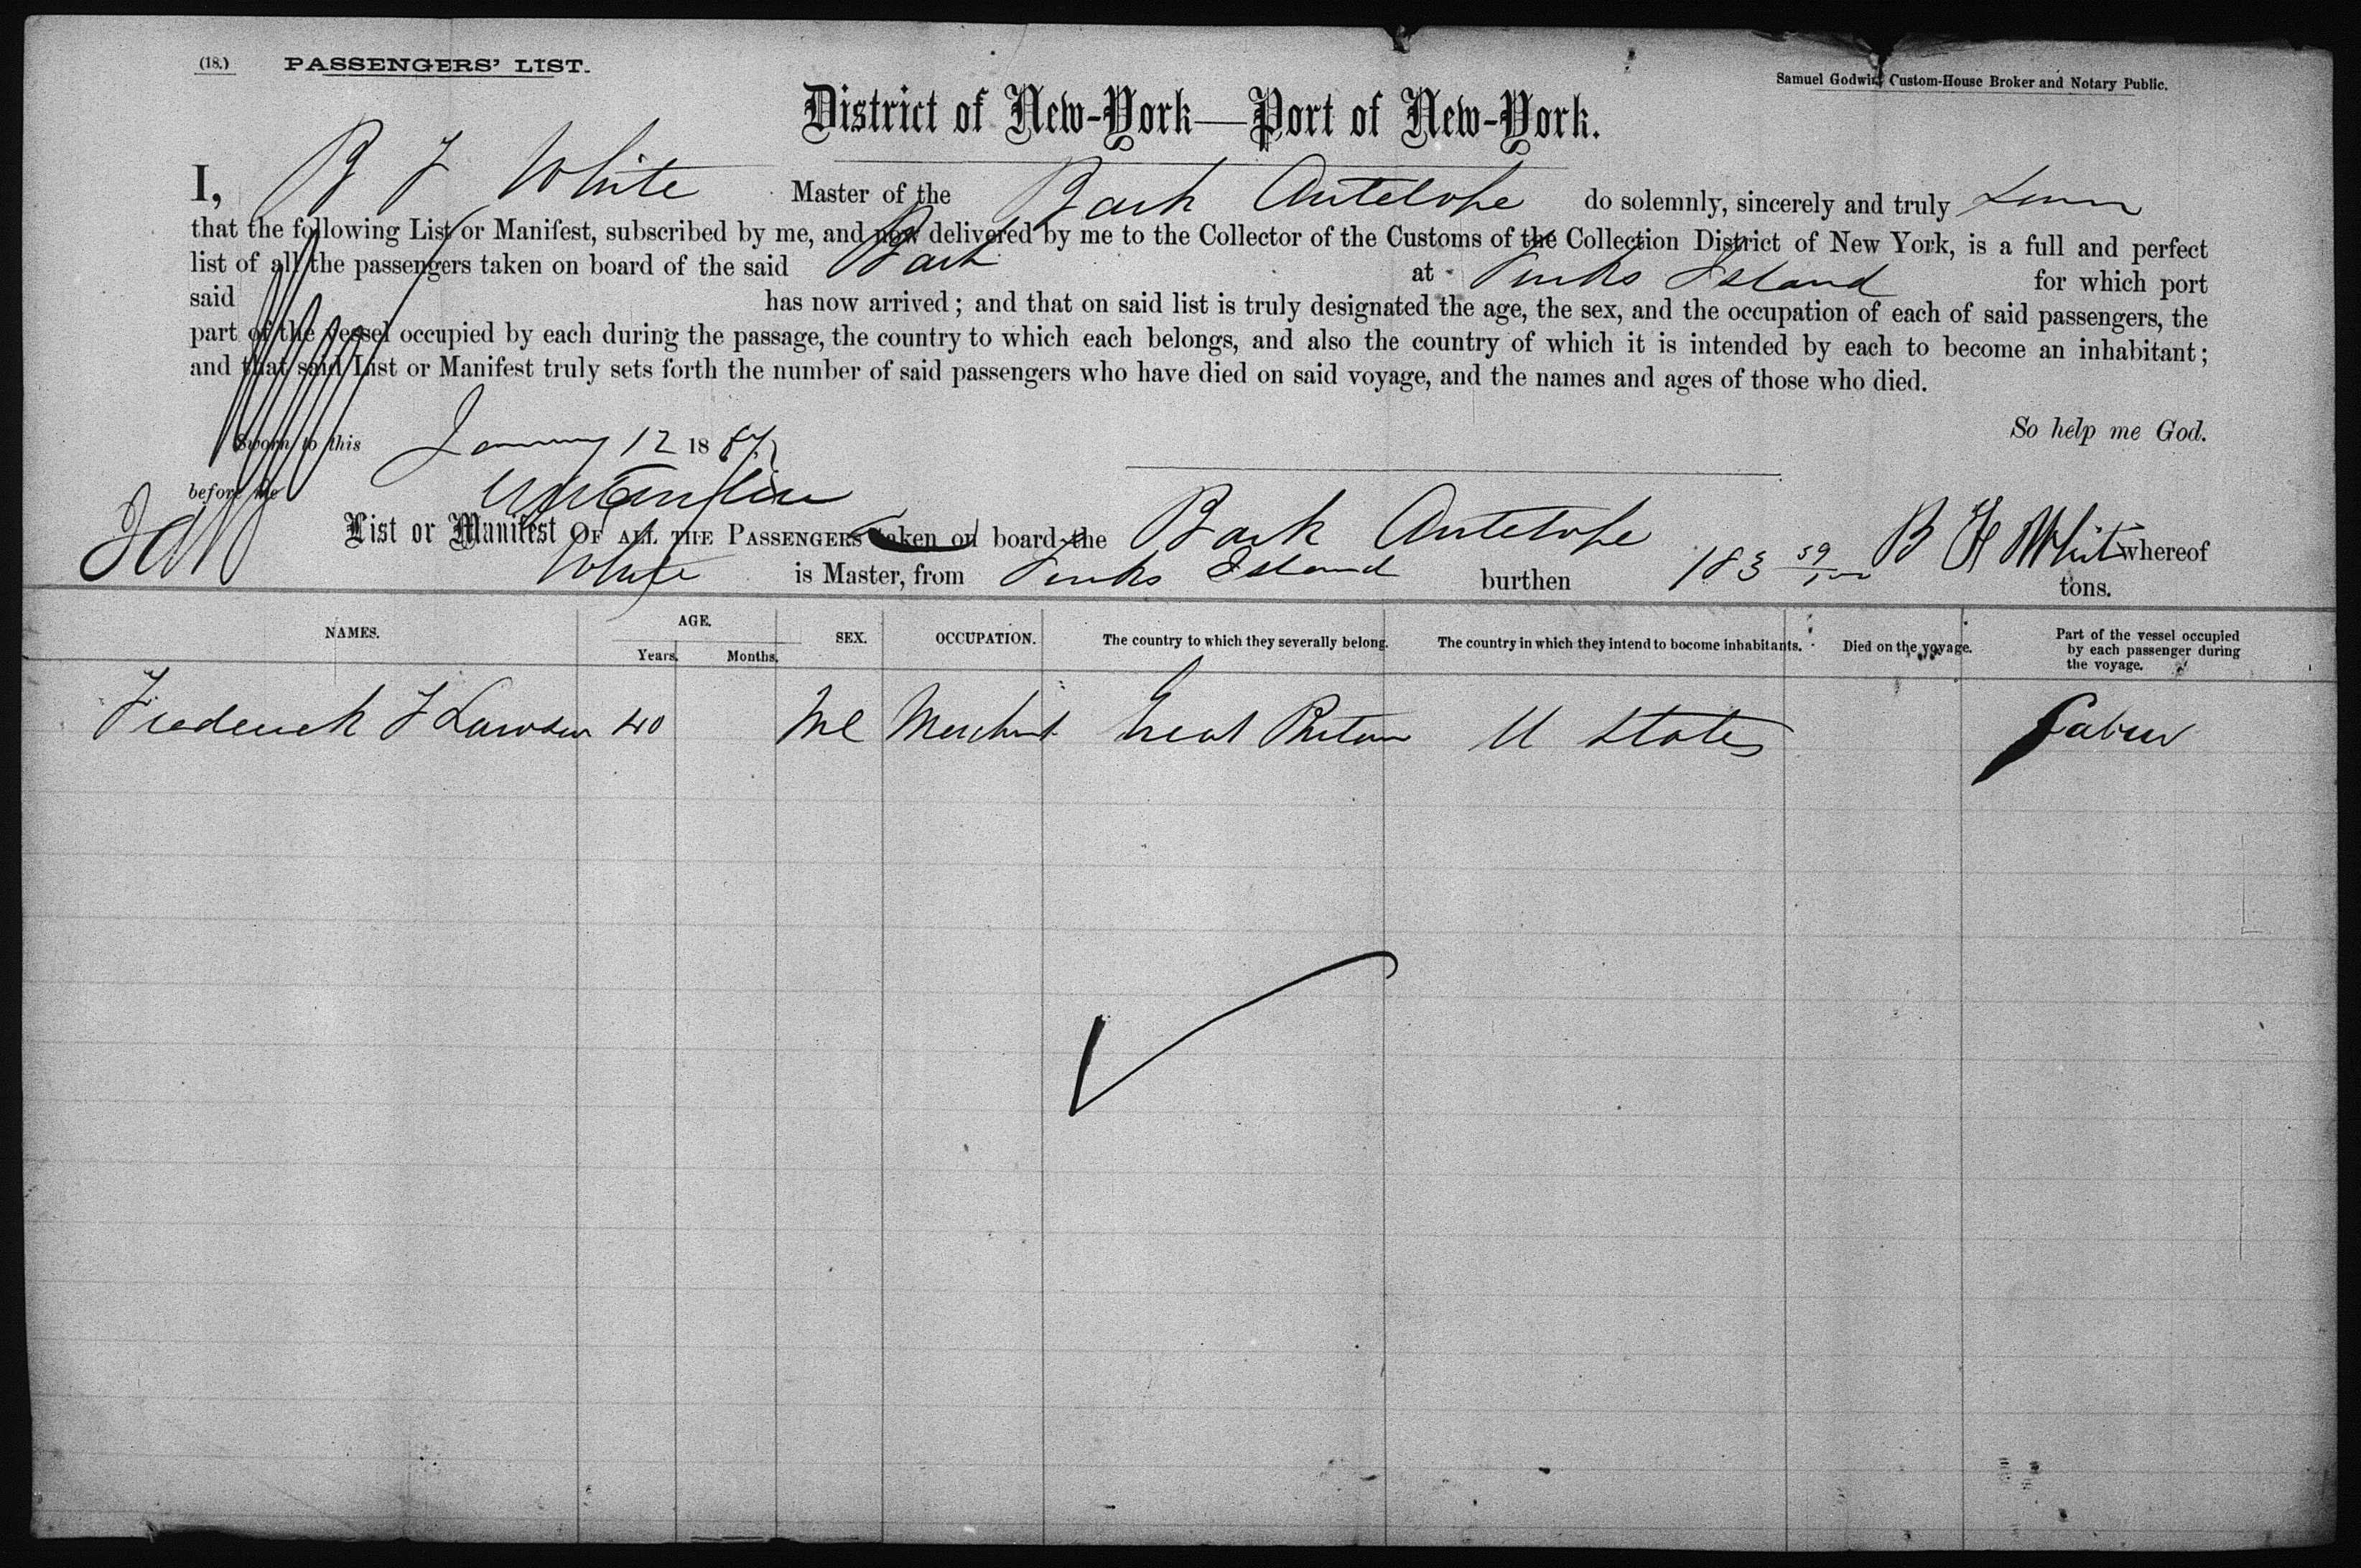 (18.) PASSENGERS' LIST.
Samuel Godwin, Custom-House Broker and Notary Public.
District of New-York—Port of New-York.
I, B F White Master of the Bark Antelope do solemnly, sincerely and truly
that the following List or Manifest, subscribed by me, and now delivered by me to the Collector of the Customs of the Collection District of New York, is a full and perfect
list of all the passengers taken on board of the said Bark at Turks Island for which port
said has now arrived; and that on said list is truly designated the age, the sex, and the occupation of each of said passengers, the
part of the vessel occupied by each during the passage, the country to which each belongs, and also the country of which it is intended by each to become an inhabitant;
and that said List or Manifest truly sets forth the number of said passengers who have died on said voyage, and the names and ages of those who died.
So help me God.
Sworn to this January 12 1887
before me
B F White
List or Manifest OF ALL THE PASSENGERS taken on board the Bark Antelope whereof
White is Master, from Turks Island burthen 183 59/100 tons.
NAMES. AGE. SEX. OCCUPATION. The country to which they severally belong. The country in which they intend to bocome inhabitants. Died on the voyage. Part of the vessel occupied by each passenger during the voyage.
Years. Months.
Frederick F Lawson 40 Ml Merchant Great Britain U States Cabin